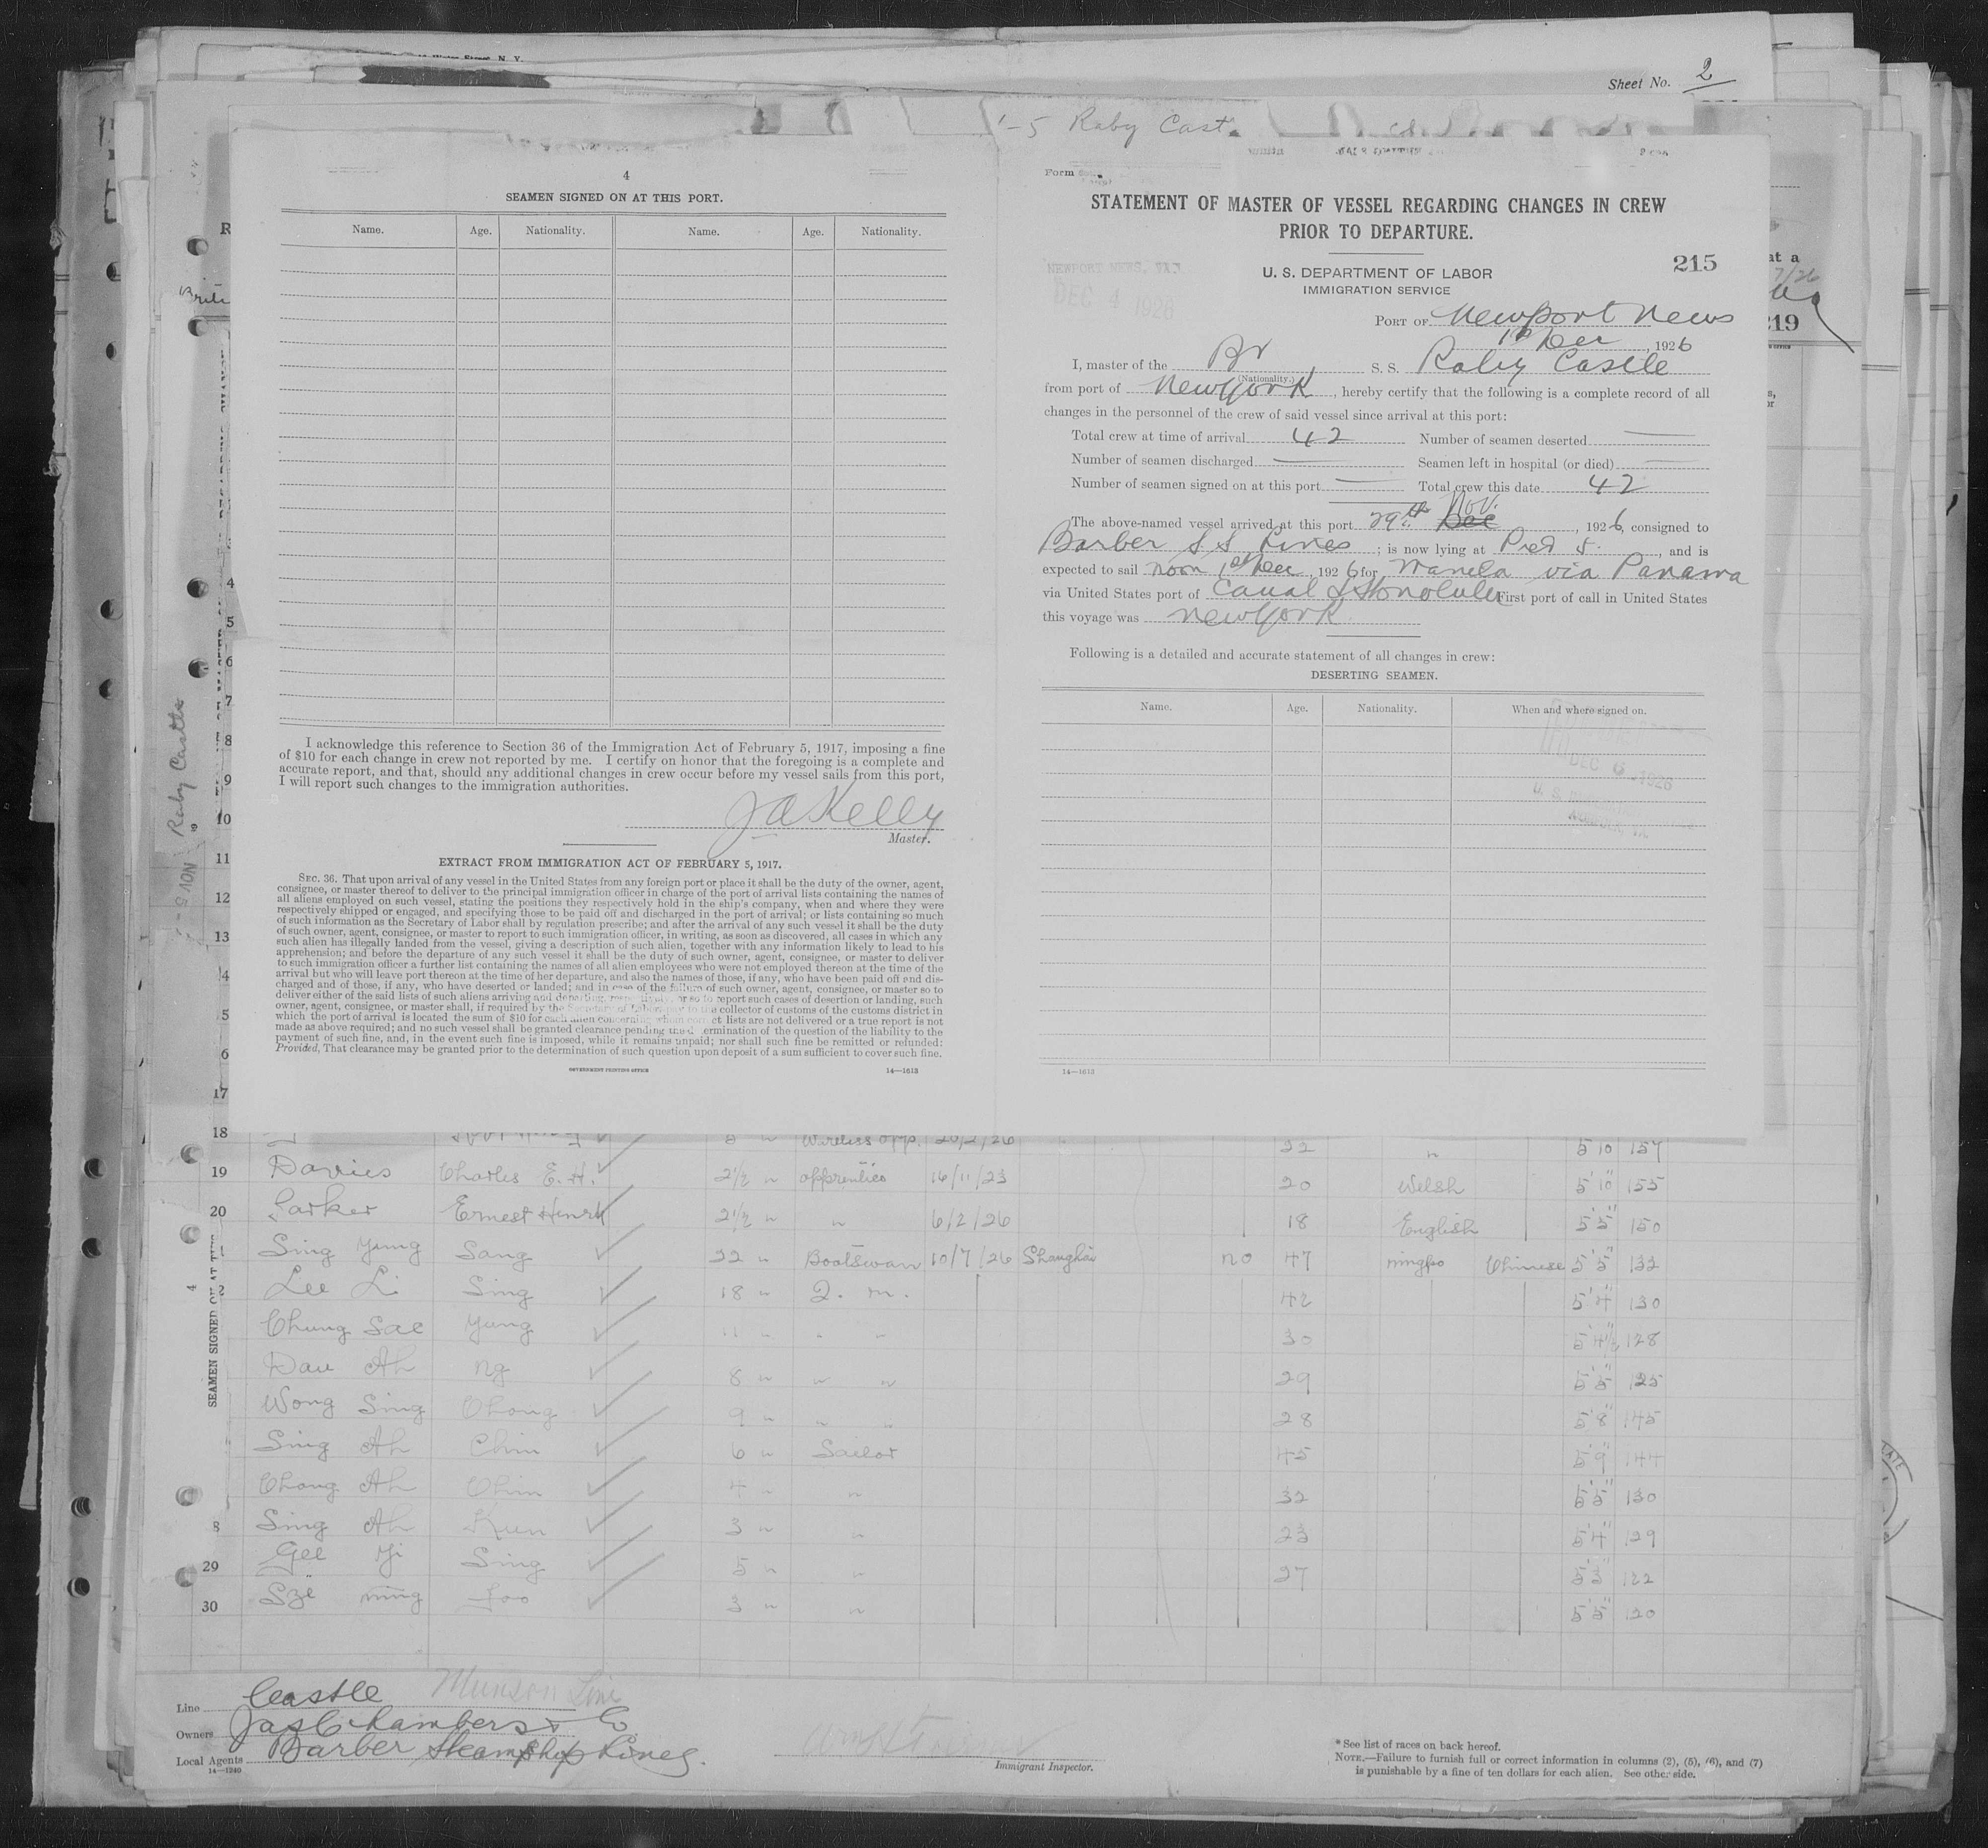 Sheet No. 2
1-5 Raby Cast.
4
SEAMEN SIGNED ON AT THIS PORT.
Name. Age. Nationality. Name. Age. Nationality.
I acknowledge this reference to Section 36 of the Immigration Act of February 5, 1917, imposing a fine
of $10 for each change in crew not reported by me. I certify on honor that the foregoing is a complete and
accurate report, and that, should any additional changes in crew occur before my vessel sails from this port,
I will report such changes to the immigration authorities.
J A Kelly
Master.
EXTRACT FROM IMMIGRATION ACT OF FEBRUARY 5, 1917.
SEC. 36. That upon arrival of any vessel in the United States from any foreign port or place it shall be the duty of the owner, agent,
consignee, or master thereof to deliver to the principal immigration officer in charge of the port of arrival lists containing the names of
all aliens employed on such vessel, stating the positions they respectively hold in the ship's company, when and where they were
respectively shipped or engaged, and specifying those to be paid off and discharged in the port of arrival; or lists containing so much
of such information as the Secretary of Labor shall by regulation prescribe; and after the arrival of any such vessel it shall be the duty
of such owner, agent, consignee, or master to report to such immigration officer, in writing, as soon as discovered, all cases in which any
such alien has illegally landed from the vessel, giving a description of such alien, together with any information likely to lead to his
apprehension; and before the departure of any such vessel it shall be the duty of such owner, agent, consignee, or master to deliver
to such immigration officer a further list containing the names of all alien employees who were not employed thereon at the time of the
arrival but who will leave port thereon at the time of her departure, and also the names of those, if any, who have been paid off and dis-
charged and of those, if any, who have deserted or landed; and in case of the failure of such owner, agent, consignee, or master so to
deliver either of the said lists of such aliens arriving and departing, respectively, or so to report such cases of desertion or landing, such
owner, agent, consignee, or master shall, if required by the Secretary of Labor, pay to the collector of customs of the customs district in
which the port of arrival is located the sum of $10 for each alien concerning whom correct lists are not delivered or a true report is not
made as above required; and no such vessel shall be granted clearance pending the determination of the question of the liability to the
payment of such fine, and, in the event such fine is imposed, while it remains unpaid; nor shall such fine be remitted or refunded:
Provided, That clearance may be granted prior to the determination of such question upon deposit of a sum sufficient to cover such fine.
GOVERNMENT PRINTING OFFICE 14—1613
Form
STATEMENT OF MASTER OF VESSEL REGARDING CHANGES IN CREW
PRIOR TO DEPARTURE.
215
NEWPORT NEWS, VA.
DEC 4 1926
U. S. DEPARTMENT OF LABOR
IMMIGRATION SERVICE
PORT OF Newport News
1st Dec, 1926
I, master of the Br S. S. Raby Castle
(Nationality.)
from port of New York, hereby certify that the following is a complete record of all
changes in the personnel of the crew of said vessel since arrival at this port:
Total crew at time of arrival 42 Number of seamen deserted —
Number of seamen discharged — Seamen left in hospital (or died) —
Number of seamen signed on at this port — Total crew this date 42
The above-named vessel arrived at this port 29th Dec Nov., 1926, consigned to
Barber S S Lines; is now lying at Pier 5., and is
expected to sail noon 1st Dec, 1926 for Manila via Panama
via United States port of Canal & Honolulu First port of call in United States
this voyage was New York
Following is a detailed and accurate statement of all changes in crew:
DESERTING SEAMEN.
Name. Age. Nationality. When and where signed on.
DEC 6 1926
14—1613
219
Raby Castle
SEAMEN SIGNED ON AT THIS
18 Wireless opp. 20/2/26 22 " 5 10 157
19 Davies Charles E. H. 2½ " apprentice 16/11/23 20 Welsh 5'10" 155
20 Parker Ernest Henry 2½ " " 6/2/26 18 English 5'5" 150
Sing Yung Sang 22 " Boatswan 10/7/26 Shanghai no 47 ningpo Chinese 5'5" 132
Lee Li Sing 18 " Q. m. 42 5'4" 130
Chung Sae Yung 11 " " " 30 5'4½ 128
Dau Ah Ng 8 " " " 29 5'5" 125
Wong Sing Chong 9 " " " 28 5'8" 145
Sing Ah Chin 6 " Sailor 45 5'9" 144
Chong Ah Chin 4 " " 32 5'5" 130
8 Sing Ah Kun 3 " " 23 5'4" 129
29 Gee Yi Sing 5 " " 27 5'5" 122
30 Sze ming Foo 3 " " 5'5" 120
Line Castle Munson Line
Owners Jas Chambers & Co
Local Agents Barber Steamship Lines.
14—1240
Immigrant Inspector.
* See list of races on back hereof.
NOTE.—Failure to furnish full or correct information in columns (2), (5), (6), and (7)
is punishable by a fine of ten dollars for each alien. See other side.